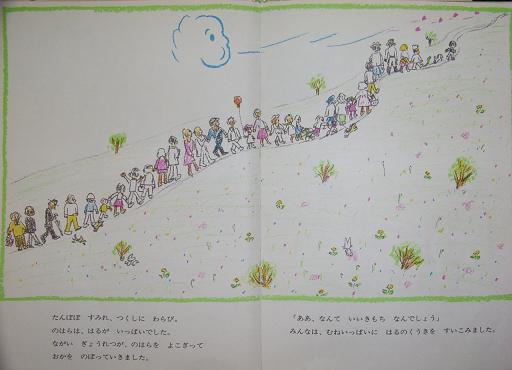 たんぽぽ　すみれ、つくしに　わらび。
のはらは、はるが　いっぱいでした。
ながい　ぎょうれつが、のはらを　よこぎって
おかを　のぼっていきました。
「ああ、なんて　いいきもち　なんでしょう」
みんなは、むねいっぱいに　はるのくうきを　すいこみました。